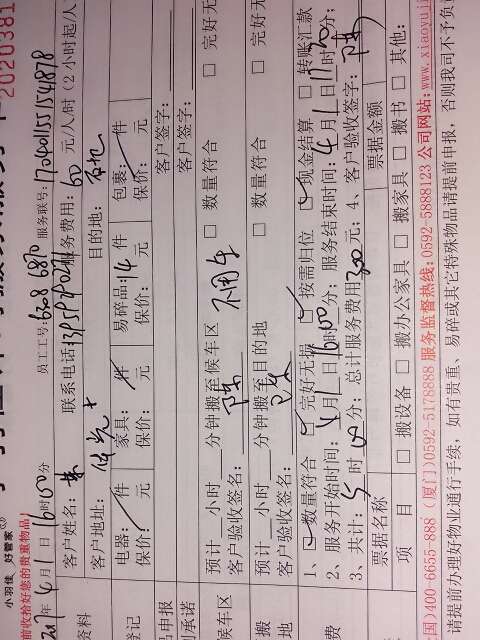 小羽佳 好管家
2020381
前收拾好您的贵重物品)
2017年4月1日16时00分 员工工号: 6308 6870 服务联号: 1704011551541878
客户姓名: 联系电话 服务费用: 60 元/人/时 (2小时起/人
客户地址: 目的地:
资料
电器: 件 家具: 件 易碎品: 14 件 包裹: 件
保价: 元 保价: 元 保价: 元 保价: 元
登记
品申报 客户签字:
承诺 客户签字:
预计 小时 分钟搬至候车区 不用车 □ 数量符合 □ 完好无
客户验收签名: 陈
候车区
预计 小时 分钟搬至目的地 □ 数量符合 □ 完好无
客户验收签名:
搬
地
1、□ 数量符合 □ 完好无损 □ 按需归位 □ 现金结算 □ 转账汇款
2、服务开始时间: 4月1日16时00分; 服务结束时间: 4月1日 时 分;
3、共计: 5 时 00 分; 总计服务费用 300 元; 4、客户验收签字: 陈
费
票据名称 票据金额
项 目 □ 搬设备 □ 搬办公家具 □ 搬家具 □ 搬书 □ 其他:
国)400-6655-888 (厦门)0592-5178888 服务监督热线: 0592-5888123 公司网站: www.xiaoyuji
请提前办理好物业通行手续,如有贵重、易碎或其它特殊物品请提前申报,否则我司不予负